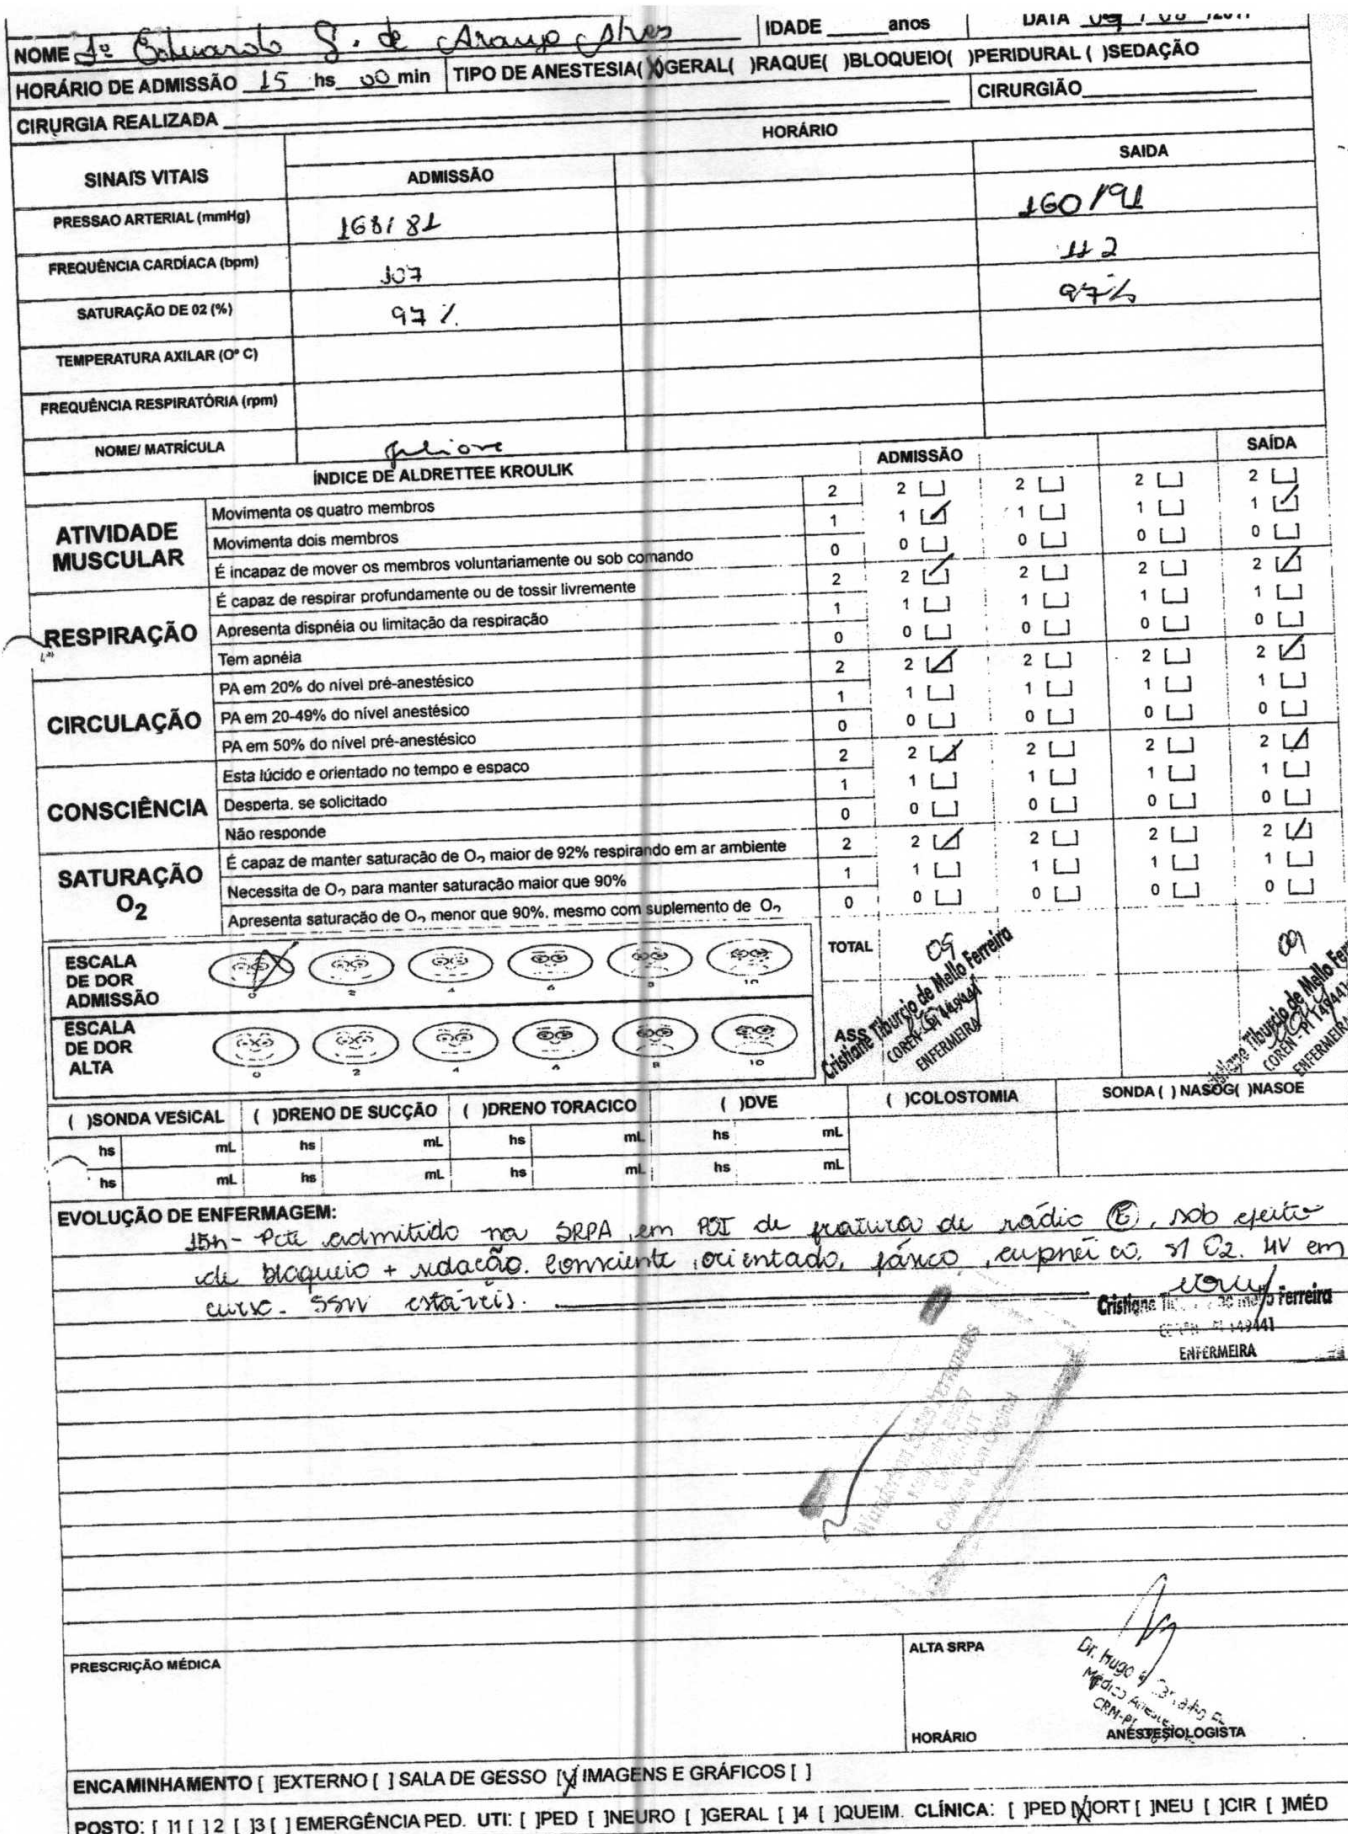 NOME Jº Eduardo G. de Araujo Alves IDADE ____anos DATA 09 / 08 /201
HORÁRIO DE ADMISSÃO 15 hs 00 min TIPO DE ANESTESIA(X)GERAL( )RAQUE( )BLOQUEIO( )PERIDURAL ( )SEDAÇÃO
CIRURGIA REALIZADA ____ CIRURGIÃO____
HORÁRIO
SINAIS VITAIS ADMISSÃO SAIDA
PRESSAO ARTERIAL (mmHg) 168/ 81 160/91
FREQUÊNCIA CARDÍACA (bpm) 107 112
SATURAÇÃO DE 02 (%) 97 % 97%
TEMPERATURA AXILAR (Oº C)
FREQUÊNCIA RESPIRATÓRIA (rpm)
NOME/ MATRÍCULA
ÍNDICE DE ALDRETTEE KROULIK ADMISSÃO SAÍDA
ATIVIDADE MUSCULAR
Movimenta os quatro membros 2 2 [ ] 2 [ ] 2 [ ] 2 [ ]
Movimenta dois membros 1 1 [/] 1 [ ] 1 [ ] 1 [/]
É incapaz de mover os membros voluntariamente ou sob comando 0 0 [ ] 0 [ ] 0 [ ] 0 [ ]
RESPIRAÇÃO
É capaz de respirar profundamente ou de tossir livremente 2 2 [/] 2 [ ] 2 [ ] 2 [/]
Apresenta dispnéia ou limitação da respiração 1 1 [ ] 1 [ ] 1 [ ] 1 [ ]
Tem apnéia 0 0 [ ] 0 [ ] 0 [ ] 0 [ ]
CIRCULAÇÃO
PA em 20% do nível pré-anestésico 2 2 [/] 2 [ ] 2 [ ] 2 [/]
PA em 20-49% do nível anestésico 1 1 [ ] 1 [ ] 1 [ ] 1 [ ]
PA em 50% do nível pré-anestésico 0 0 [ ] 0 [ ] 0 [ ] 0 [ ]
CONSCIÊNCIA
Esta lúcido e orientado no tempo e espaco 2 2 [/] 2 [ ] 2 [ ] 2 [/]
Desperta. se solicitado 1 1 [ ] 1 [ ] 1 [ ] 1 [ ]
Não responde 0 0 [ ] 0 [ ] 0 [ ] 0 [ ]
SATURAÇÃO O2
É capaz de manter saturação de O2 maior de 92% respirando em ar ambiente 2 2 [/] 2 [ ] 2 [ ] 2 [/]
Necessita de O2 para manter saturação maior que 90% 1 1 [ ] 1 [ ] 1 [ ] 1 [ ]
Apresenta saturação de O2 menor que 90%. mesmo com suplemento de O2 0 0 [ ] 0 [ ] 0 [ ] 0 [ ]
TOTAL 09 09
ESCALA DE DOR ADMISSÃO 0 2 4 6 8 10
ESCALA DE DOR ALTA 0 2 4 6 8 10
ASS
Cristiane Tiburcio de Mello Ferreira
COREN - PI 149441
ENFERMEIRA
Cristiane Tiburcio de Mello Fer
COREN - PI 149441
ENFERMEIRA
( )SONDA VESICAL ( )DRENO DE SUCÇÃO ( )DRENO TORACICO ( )DVE ( )COLOSTOMIA SONDA ( ) NASOG( )NASOE
hs mL hs mL hs mL hs mL
hs mL hs mL hs mL hs mL
EVOLUÇÃO DE ENFERMAGEM:
15h- Pcte admitido na SRPA, em POI de fratura de rádio (E), sob efeito
de bloqueio + sedação. Consciente, orientado, eupneico, s/ O2. HV em
curso. SSVV estáveis.
Cristiane Ferreira
149441
ENFERMEIRA
PRESCRIÇÃO MÉDICA
ALTA SRPA
Dr. Hugo
CRM-PI
HORÁRIO ANESTESIOLOGISTA
ENCAMINHAMENTO [ ]EXTERNO [ ] SALA DE GESSO [X] IMAGENS E GRÁFICOS [ ]
POSTO: [ ]1 [ ]2 [ ]3 [ ] EMERGÊNCIA PED. UTI: [ ]PED [ ]NEURO [ ]GERAL [ ]4 [ ]QUEIM. CLÍNICA: [ ]PED [X]ORT [ ]NEU [ ]CIR [ ]MÉD